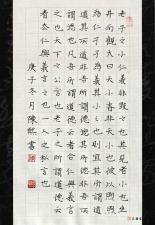 老子之小仁義非毀之也其見者小也坐
井而觀天曰天小者非天小也彼以煦煦
為仁孑孑為義其小之也則宜其所謂道
道其所道非吾所謂道也其所謂德德其所德非吾所
謂德也凡吾所謂道德云者合仁與義言
之也天下之公言也老子之所謂道德云
者去仁與義言之也一人之私言也
庚子冬月陳熙書